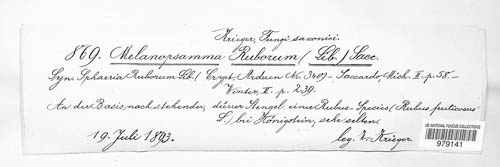 Krieger, Fungi saxonici.
869. Melanopsamma Ruborum (Lib.) Sacc.
Syn. Sphaeria Ruborum Lib. (Crypt. Arduen No. 340) - Saccardo, Mich. II. p. 58. -
Winter, II. p. 239.
An der Basis noch stehender, dürrer Stengel einer Rubus-Species (Rubus fruticosus
L.) bei Königstein, sehr selten.
19. Juli 1893. leg. W. Krieger.
US NATIONAL FUNGUS COLLECTIONS
979141